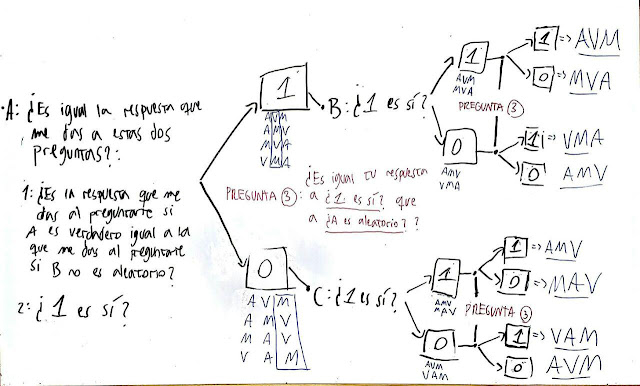 • A: ¿Es igual la respuesta que
me das a estas dos
preguntas?:
1: ¿Es la respuesta que me
das al preguntarte si
A es verdadero igual a la
que me das al preguntarte
si B no es aleatorio?
2: ¿1 es sí?
1
AVM
AMV
MVA
VMA
B: ¿1 es sí?
1
AVM
MVA
PREGUNTA 3
1 => AVM
0 => MVA
0
AMV
VMA
1 => VMA
0 AMV
¿Es igual tu respuesta
PREGUNTA 3: a ¿1 es sí? que
a ¿A es aleatorio? ?
0
A V M
A M V
M A V
V A M
C: ¿1 es sí?
1
AMV
MAV
PREGUNTA 3
1 => AMV
0 => MAV
0
AVM
VAM
1 => VAM
0 AVM